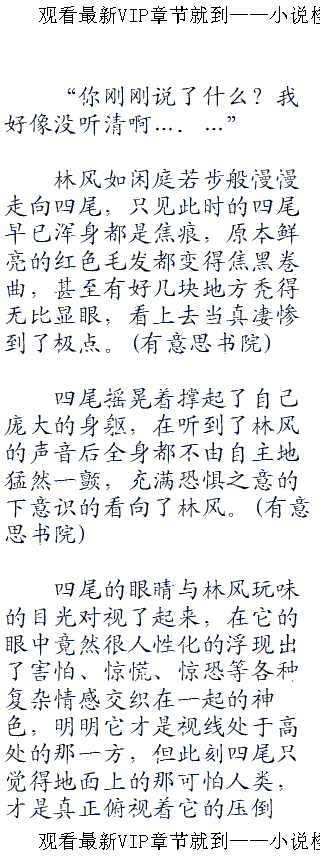 观看最新VIP章节就到——小说楼
“你刚刚说了什么？我
好像没听清啊…．…”
林风如闲庭若步般慢慢
走向四尾，只见此时的四尾
早已浑身都是焦痕，原本鲜
亮的红色毛发都变得焦黑卷
曲，甚至有好几块地方秃得
无比显眼，看上去当真凄惨
到了极点。(有意思书院)
四尾摇晃着撑起了自己
庞大的身躯，在听到了林风
的声音后全身都不由自主地
猛然一颤，充满恐惧之意的
下意识的看向了林风。(有意
思书院)
四尾的眼睛与林风玩味
的目光对视了起来，在它的
眼中竟然很人性化的浮现出
了害怕、惊慌、惊恐等各种
复杂情感交织在一起的神
色，明明它才是视线处于高
处的那一方，但此刻四尾只
觉得地面上的那可怕人类，
才是真正俯视着它的压倒
观看最新VIP章节就到——小说